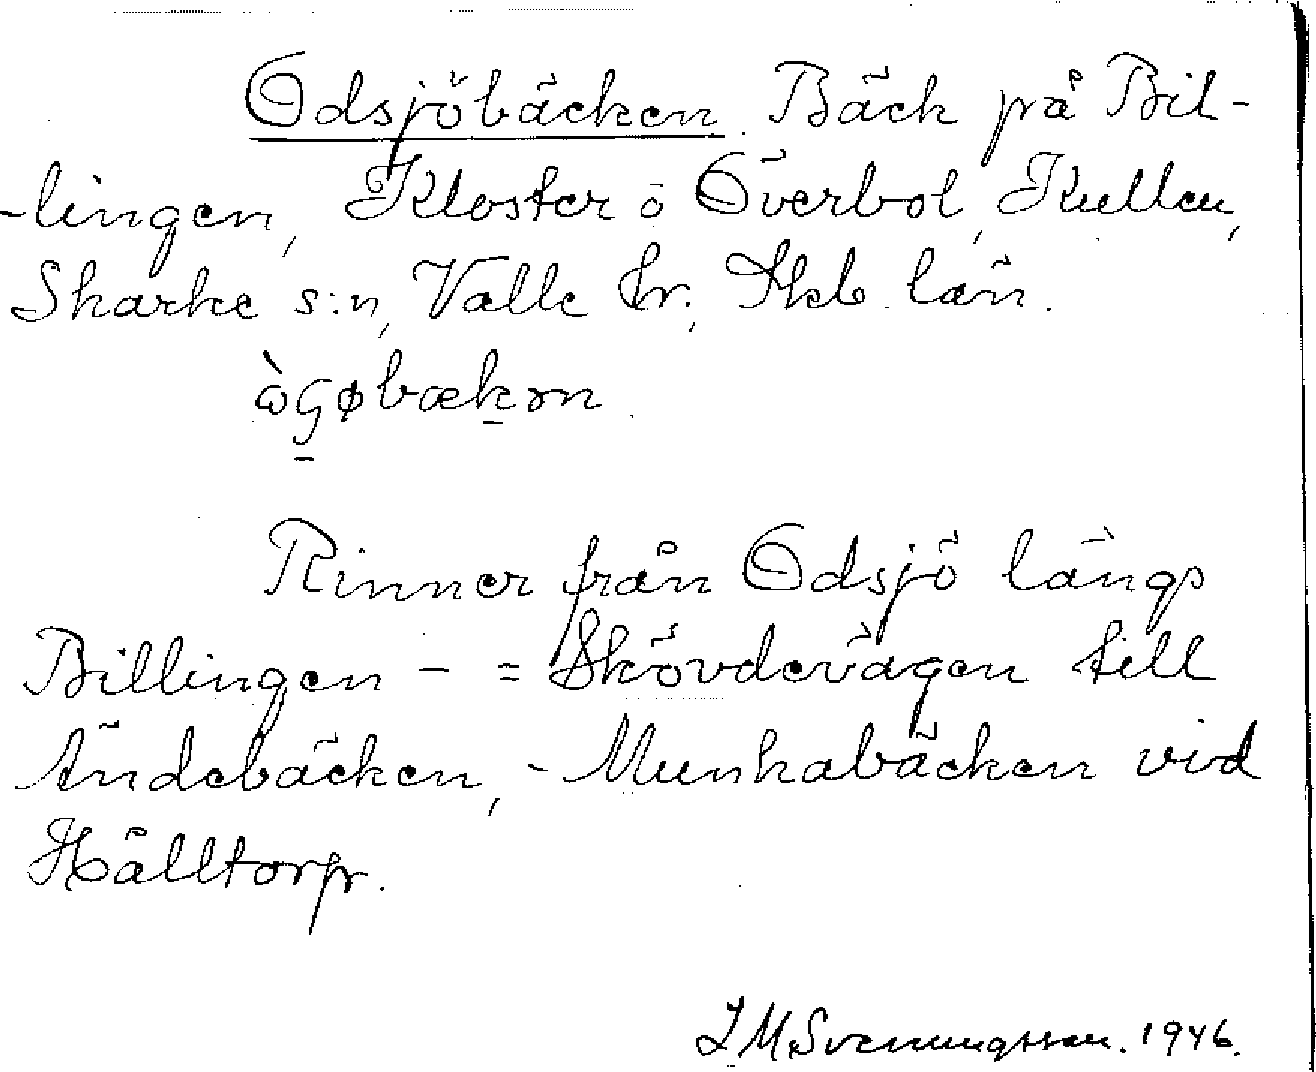 Odsjöbäcken. Bäck på Bil-
-lingen, Kloster o Överbol, Kullen,
Skarke s:n, Valle hr., Skb. län.
ὼGøbækɔn.
Rinner från Odsjö längs
Billingen - = Skövdevägen till
Ändebäcken, - Munkabäcken vid
Hålltorp.
I M. Svenungsson. 1946.